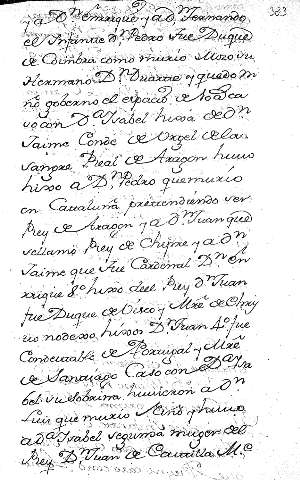 383
y a Dⁿ Enrrique y a dⁿ Fernando
el Ynfante dⁿ Pedro fue Duque
de Coimbra como murio Mozo su
Hermano Dⁿ Duarte y quedo en
su gobierno el espacio de años ca
so con Dª Isabel hixa de dⁿ
Jaime Conde de Urgel de la
sangre Real de Aragon huuo
hixo a Dⁿ Pedro que murio
en Cataluña pretendiendo ser
Rey de Aragon y a dⁿ Juan que
se llamo Rey de Chipre y a dⁿ
Jaime que fue Cardenal Dⁿ En
rrique hixo deel Rey dⁿ Juan
fue Duque de Viseo y Mrẽ de Chris
to no dexo hixos Dⁿ Juan 4º fue
Condestable de Portugal y Mrẽ
de Santiago Caso con Dª Ysa
bel su sobrina huuieron a dⁿ
que murio Niño y huuo
a dª Isabel segunda muger del
Rey Dⁿ Juan de Castilla M.ᵉ